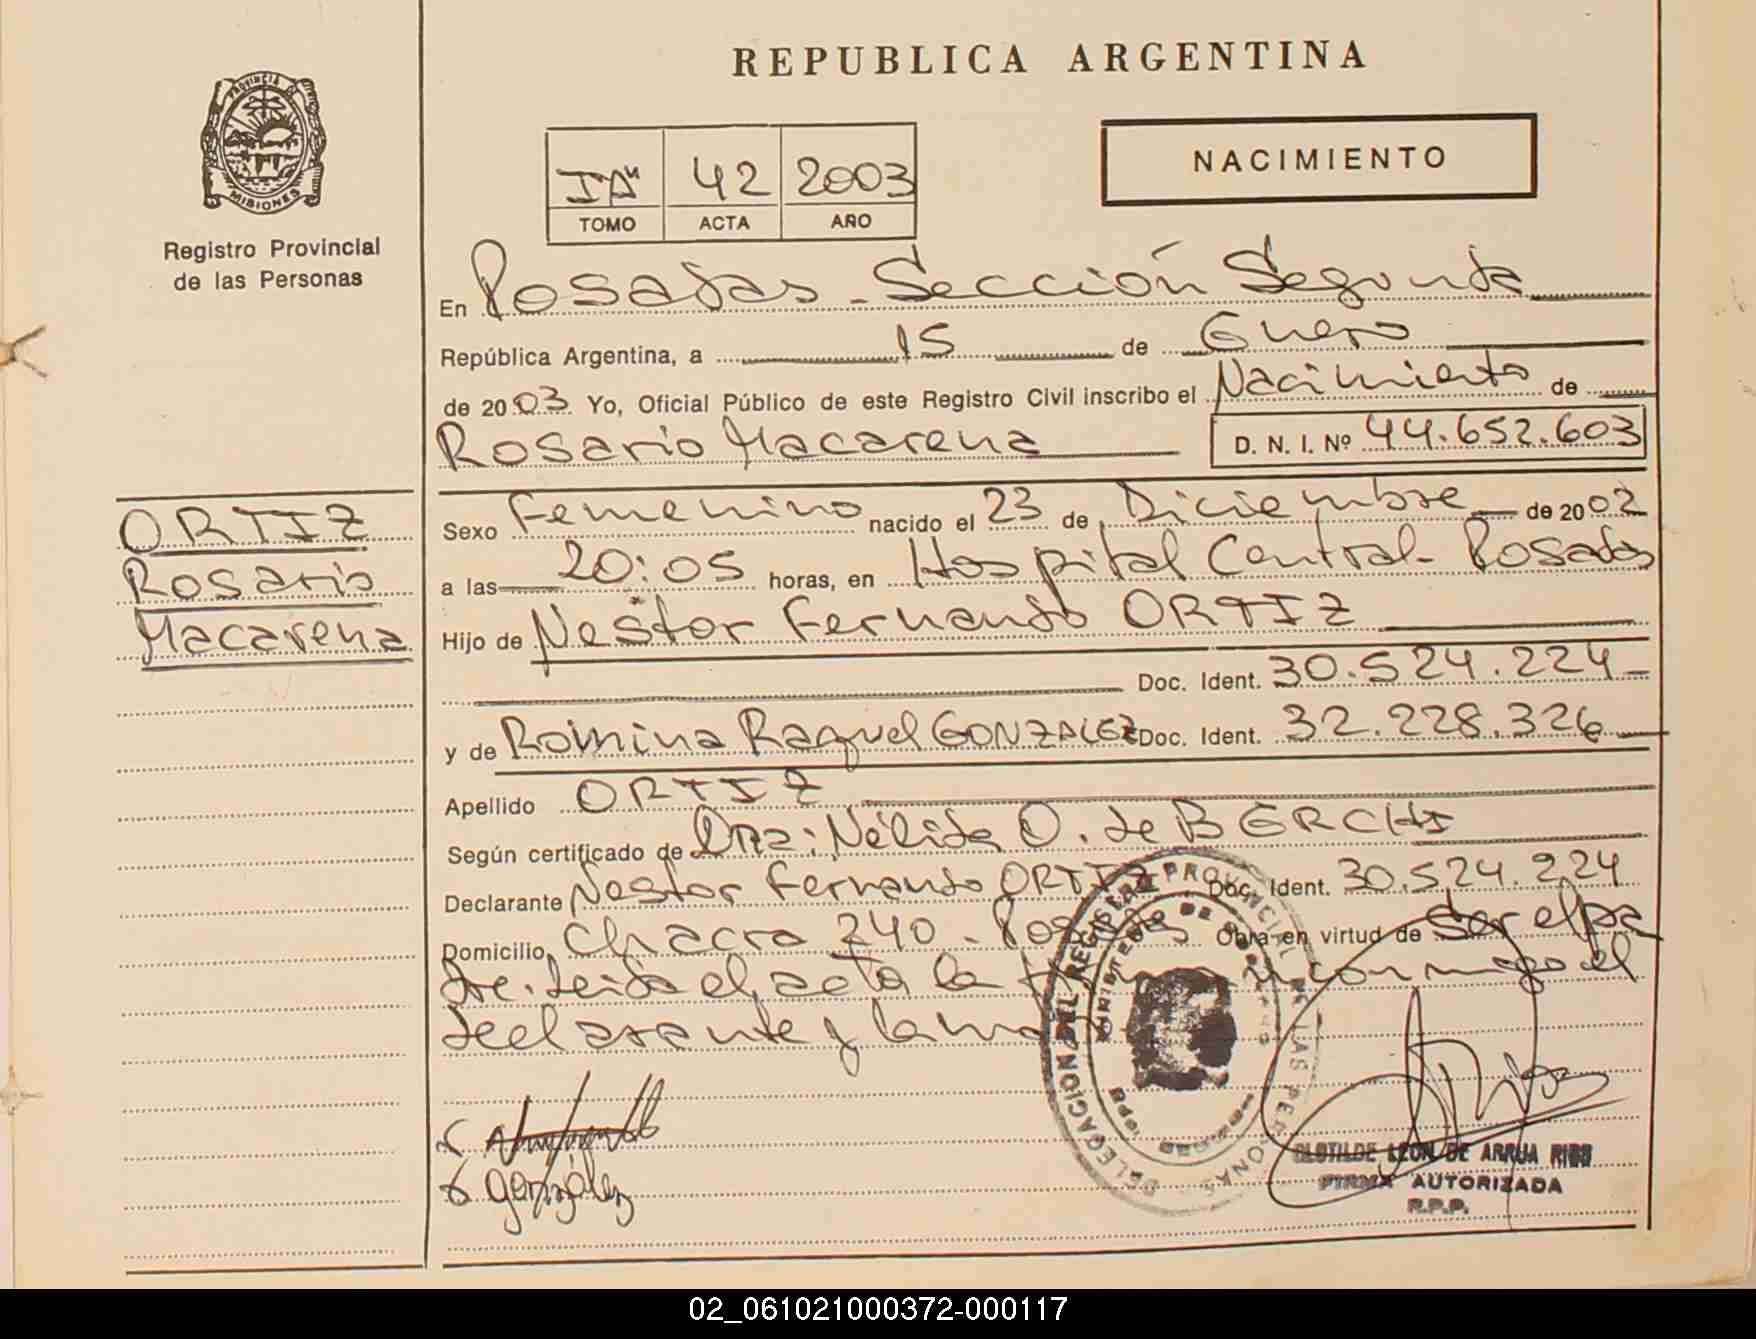 REPUBLICA ARGENTINA
PROVINCIA DE
MISIONES
Registro Provincial
de las Personas
42 2003
TOMO ACTA AÑO
NACIMIENTO
En Posadas - Sección Segunda
República Argentina, a 15 de Enero
de 2003 Yo, Oficial Público de este Registro Civil inscribo el Nacimiento de
Rosario Macarena D. N. I. Nº 44.652.603
ORTIZ
Rosario
Macarena
Sexo Femenino nacido el 23 de Diciembre de 2002
a las 20:05 horas, en Hospital Central - Posadas
Hijo de Nestor Fernando ORTIZ
Doc. Ident. 30.524.224
y de Romina Raquel GONZALEZ Doc. Ident. 32.228.326
Apellido ORTIZ
Según certificado de Dra: Nélida O. de BERCHI
Declarante Nestor Fernando ORTIZ Doc. Ident. 30.524.224
Domicilio Chacra 240 - Posadas Obra en virtud de Ser el pa
dre. Leida el acta la conmigo el
declarante y la
DELEGACION DEL REGISTRO PROVINCIAL DE LAS PERSONAS
MINISTERIO DE GOBIERNO
González
CLOTILDE LEON DE ARRUA RIOS
FIRMA AUTORIZADA
R.P.P.
02_061021000372-000117